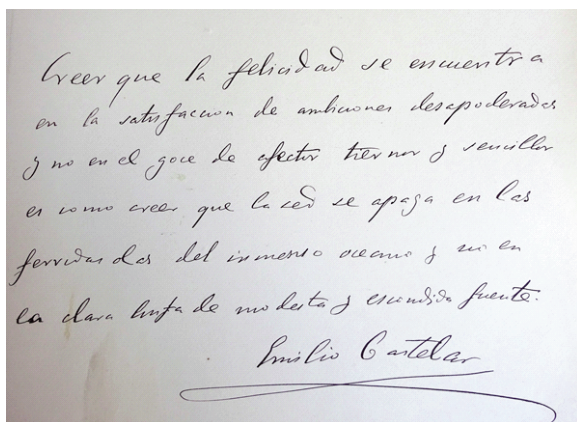 Creer que la felicidad se encuentra
en la satisfaccion de ambiciones desapoderadas
y no en el goce de afectos tiernos y sencillos
es como creer que la sed se apaga en las
del inmenso oceano y no en
la clara linfa de modesta y escondida fuente.
Emilio Castelar